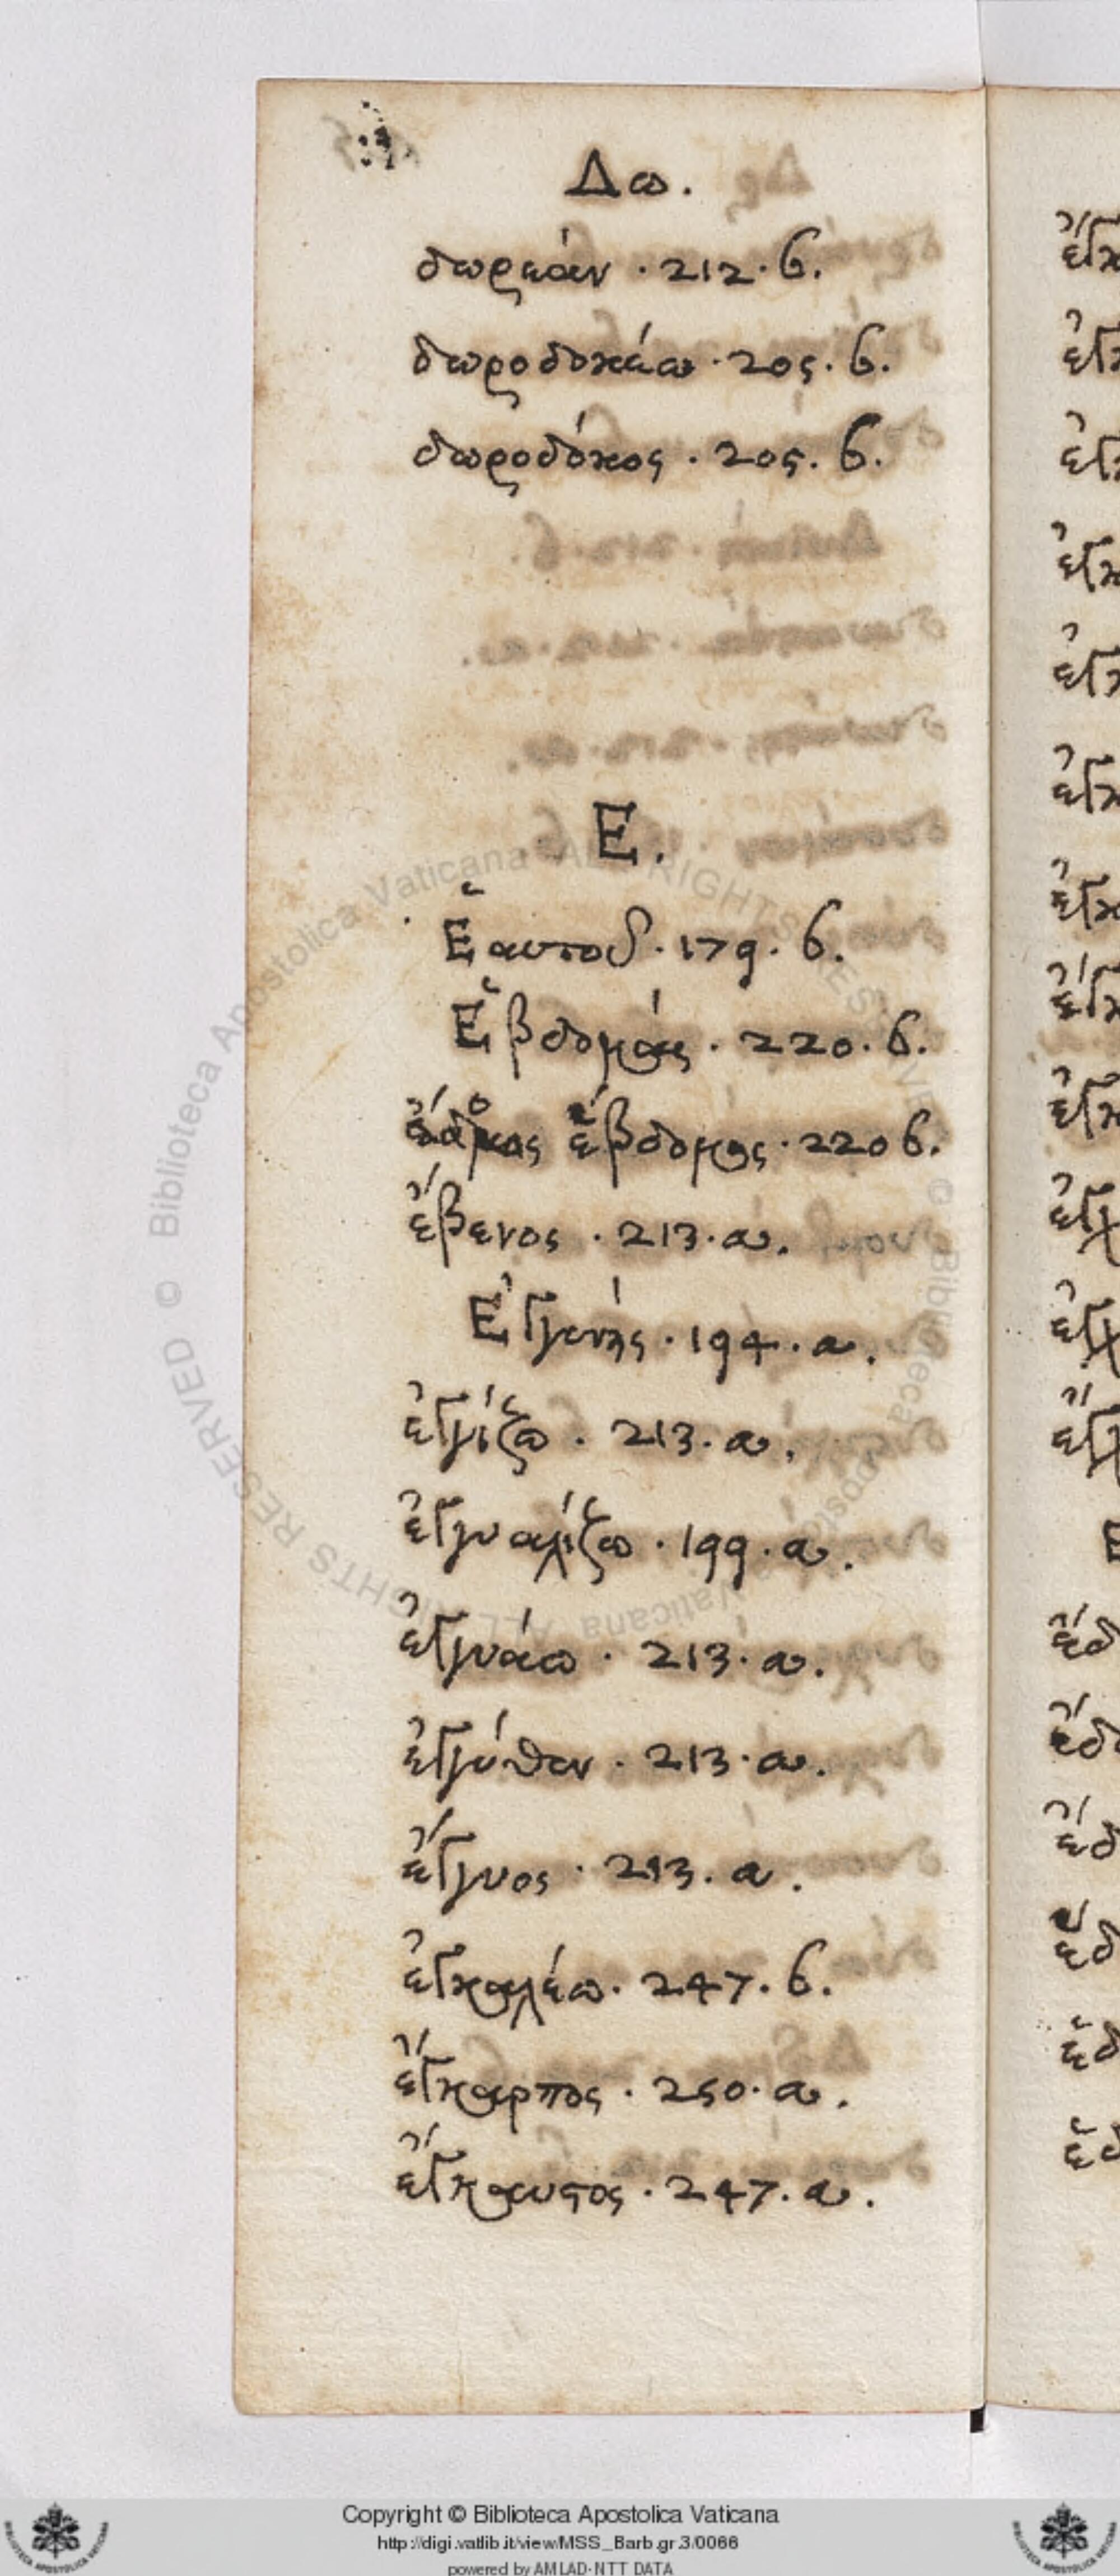 Δω.
δωρεάν · 212 · b.
δωροδοκέω · 205 · b.
δωροδόκος · 205 · b.
Ε.
Ἑαυτοῦ · 179 · b.
Ἑβδομάς · 220 · b.
ἕβδομος · 220 b.
ἔβενος · 213 · a.
Ἐγγενής · 194 · a.
ἐγγίζω · 213 · a.
ἐγγυαλίζω · 199 · a.
ἐγγυάω · 213 · a.
ἐγγύθεν · 213 · a.
ἔγγυος · 213 · a.
ἐγκαλέω · 247 · b.
ἔγκαρπος · 250 · a.
ἔγκαυστος · 247 · a.
Copyright © Biblioteca Apostolica Vaticana
http://digi.vatlib.it/view/MSS_Barb.gr.3/0066
powered by AMLAD-NTT DATA